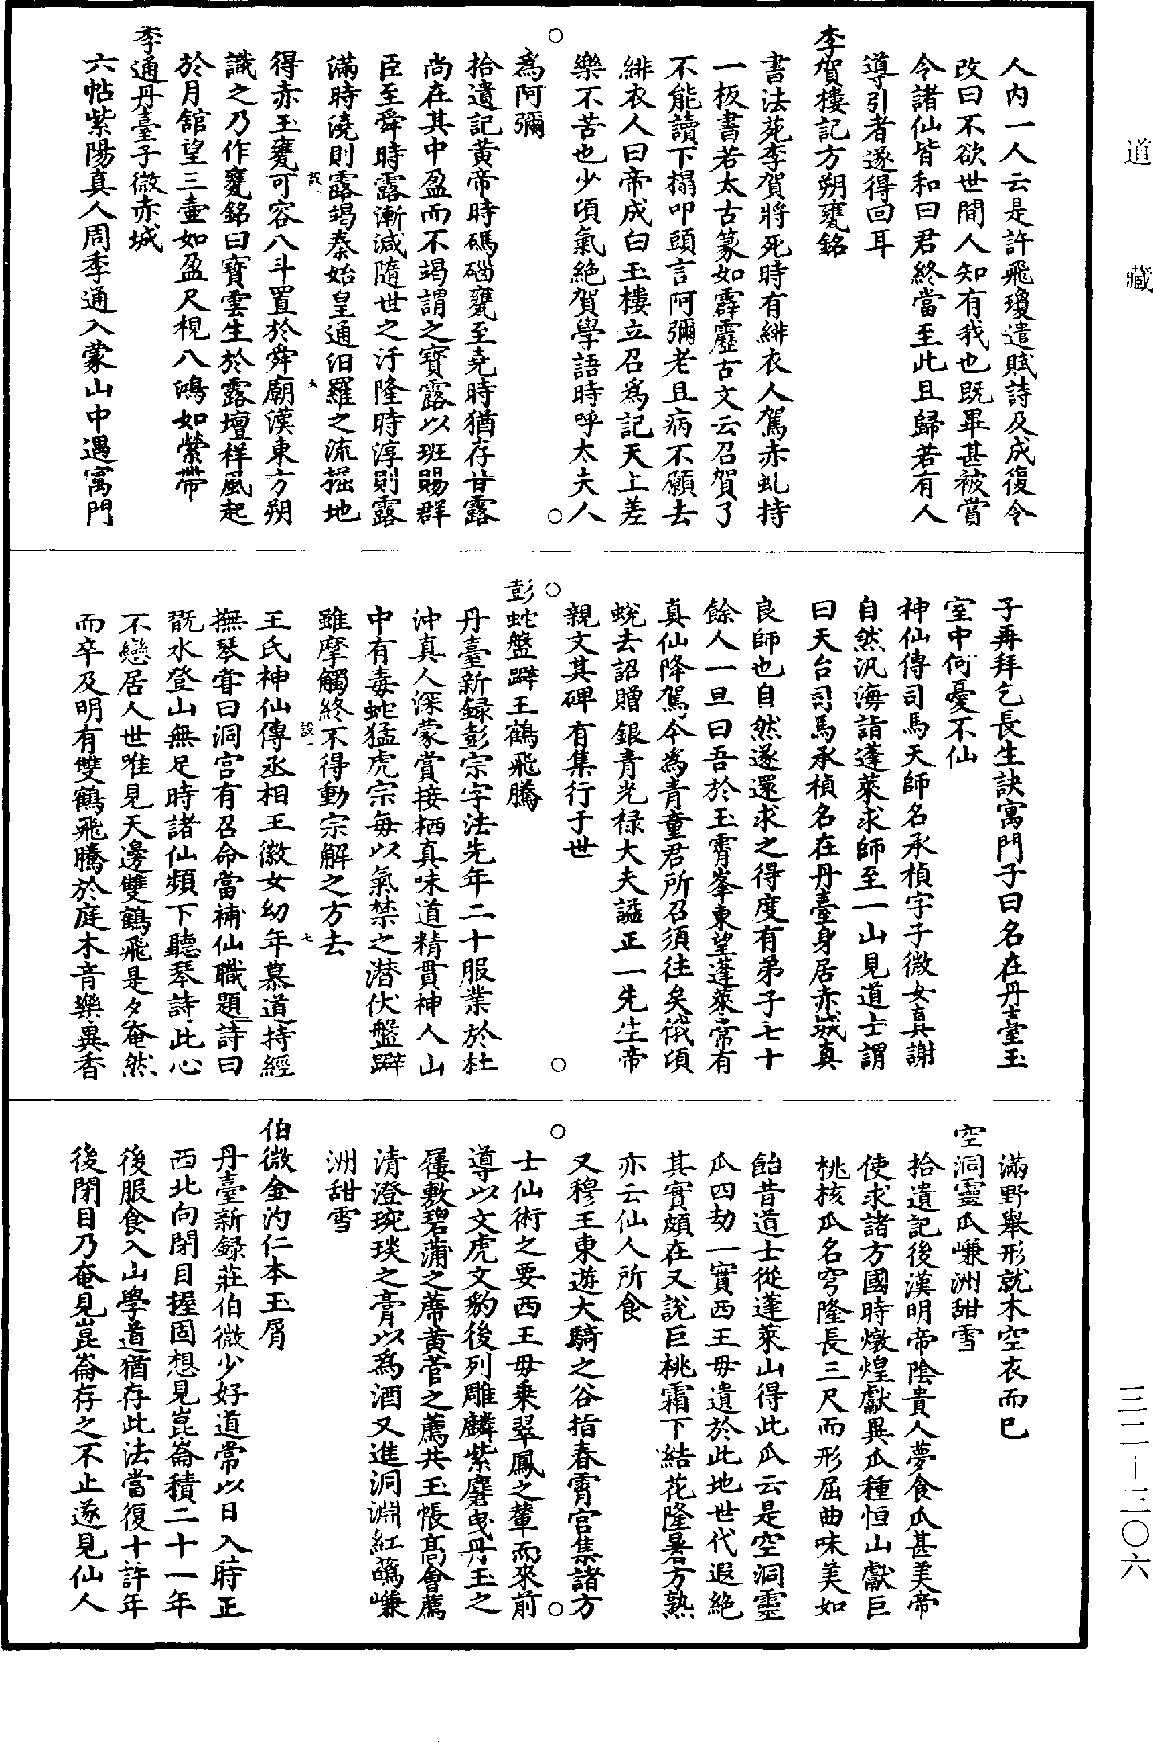 道藏
人內一人云是許飛瓊遣賦詩及成復令
改曰不欲世間人知有我也既畢甚被賞
令諸仙皆和曰君終當至此且歸若有人
導引者遂得回耳
李賀樓記方朔甕銘
書法苑李賀將死時有緋衣人駕赤虬持
一板書若太古篆如霹靂古文云召賀了
不能讀下搨叩頭言阿彌老且病不願去
緋衣人曰帝成白玉樓立召為記天上差
樂不苦也少頃氣絕賀學語時呼太夫人
為阿彌
拾遺記黃帝時碼碯甕至堯時猶存甘露
尚在其中盈而不竭謂之寶露以班賜群
臣至舜時露漸減隨世之汙隆時淳則露
滿時澆則露竭秦始皇通汨羅之流掘地
得赤玉甕可容八斗置於舜廟漢東方朔
識之乃作甕銘曰寶雲生於露壇祥風起
於月館望三壺如盈尺視八鴻如縈帶
季通丹臺子微赤城
六帖紫陽真人周季通入蒙山中遇寓門
子再拜乞長生訣寓門子曰名在丹臺玉
室中何憂不仙
神仙傳司馬天師名承楨字子微女真謝
自然汎海詣蓬萊求師至一山見道士謂
曰天台司馬承楨名在丹臺身居赤城真
良師也自然遂還求之得度有弟子七十
餘人一旦曰吾於玉霄峯東望蓬萊常有
真仙降駕今為青童君所召須往矣俄頃
蛻去詔贈銀青光祿大夫諡正一先生帝
親文其碑有集行于世
彭蛇盤辟王鶴飛騰
丹臺新録彭宗字法先年二十服業於杜
沖真人深蒙賞接栖真味道精貫神人山
中有毒蛇猛虎宗每以氣禁之潛伏盤辟
雖摩觸終不得動宗解之方去
王氏神仙傳丞相王徽女幼年慕道持經
撫琴嘗曰洞宮有召命當補仙職題詩曰
翫水登山無足時諸仙頻下聽琴詩此心
不戀居人世唯見天邊雙鶴飛是夕奄然
而卒及明有雙鶴飛騰於庭木音樂異香
滿野舉形就木空衣而已
空洞靈瓜嵰洲甜雪
拾遺記後漢明帝陰貴人夢食瓜甚美帝
使求諸方國時燉煌獻異瓜種恒山獻巨
桃核瓜名穹隆長三尺而形屈曲味美如
飴昔道士從蓬萊山得此瓜云是空洞靈
瓜四劫一實西王母遺於此地世代遐絕
其實頗在又說巨桃霜下結花隆暑方熟
亦云仙人所食
又穆王東遊大騎之谷指春霄宮集諸方
士仙術之要西王母乘翠鳳之輦而來前
導以文虎文豹後列雕麟紫麏曳丹玉之
屨敷碧蒲之蓆黃莞之薦共玉帳高會薦
清澄琬琰之膏以為酒又進洞淵紅蘤嵰
洲甜雪
伯微金汋仁本玉屑
丹臺新録莊伯微少好道常以日入時正
西北向閉目握固想見崑崙積二十一年
後服食入山學道猶存此法當復十許年
後閉目乃奄見崑崙存之不止遂見仙人
三二—三〇六